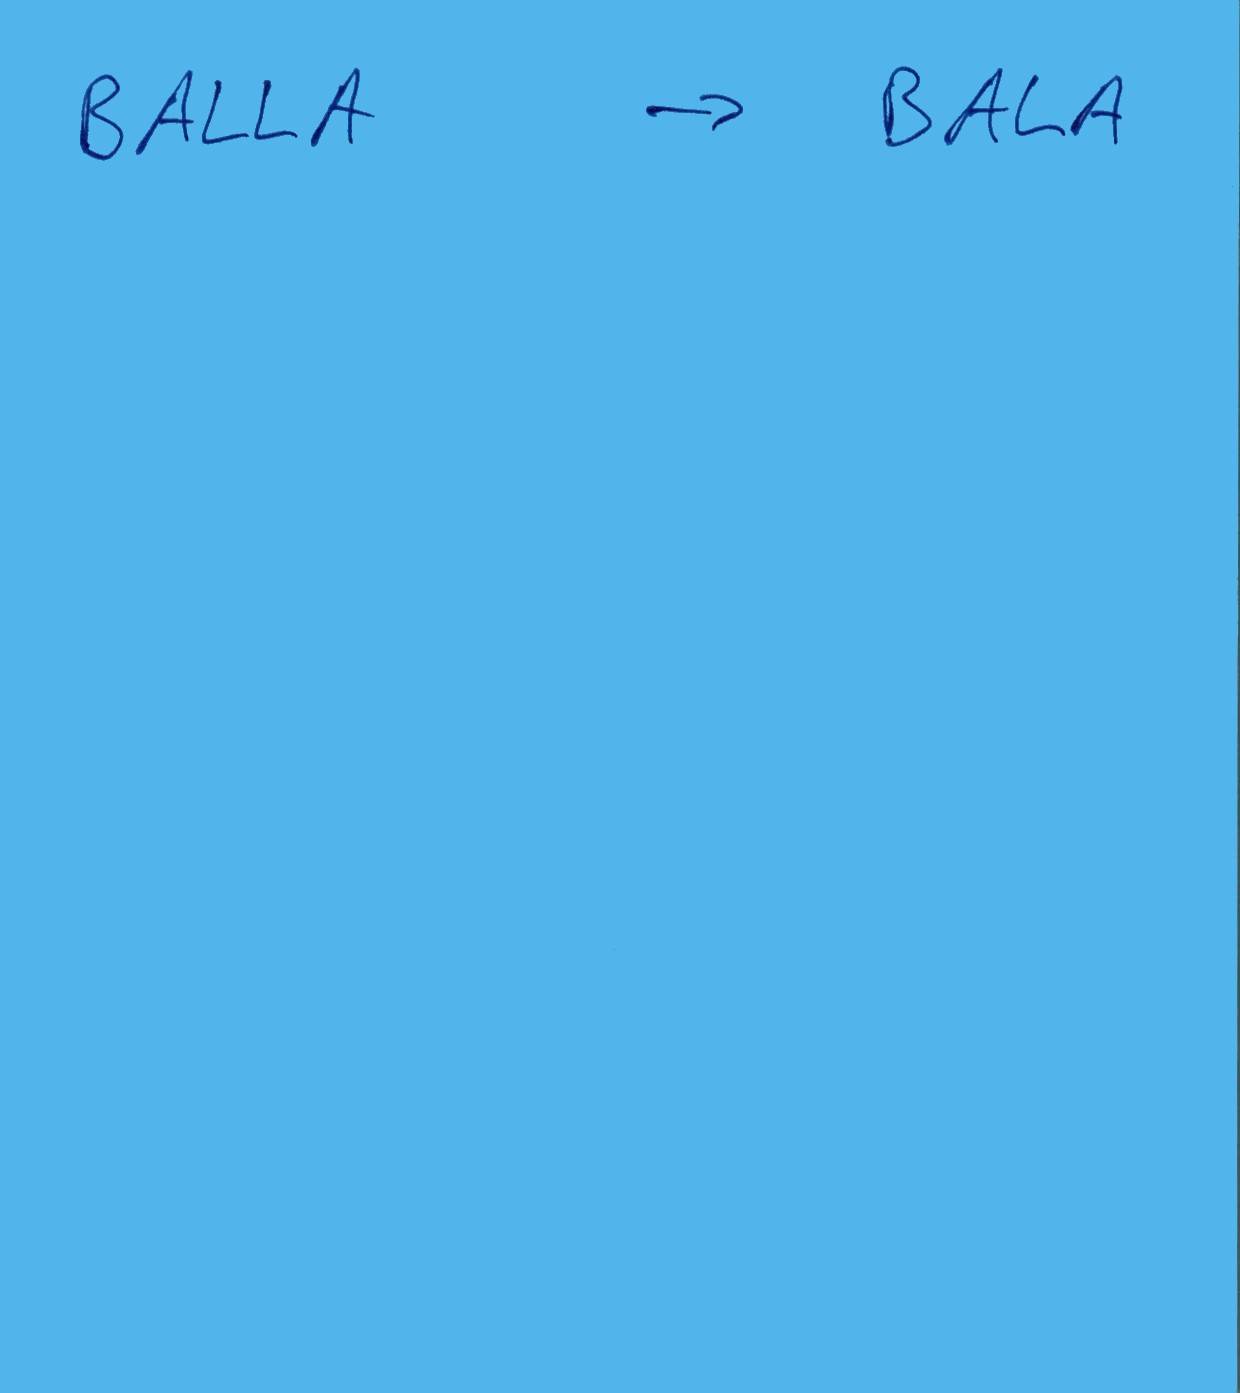 BALLA → BALA